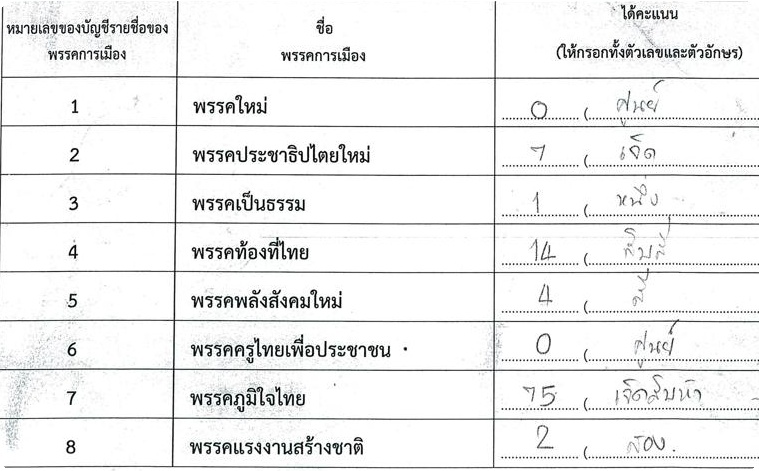 หมายเลขของบัญชีรายชื่อของ ชื่อ ได้คะแนน
พรรคการเมือง พรรคการเมือง (ให้กรอกทั้งตัวเลขและตัวอักษร)
1 พรรคใหม่ 0 ( ศูนย์
2 พรรคประชาธิปไตยใหม่ 7 ( เจ็ด
3 พรรคเป็นธรรม 1 ( หนึ่ง
4 พรรคท้องที่ไทย 14 ( สิบสี่
5 พรรคพลังสังคมใหม่ 4 ( สี่
6 พรรคครูไทยเพื่อประชาชน 0 ( ศูนย์
7 พรรคภูมิใจไทย 75 ( เจ็ดสิบห้า
8 พรรคแรงงานสร้างชาติ 2 ( สอง.